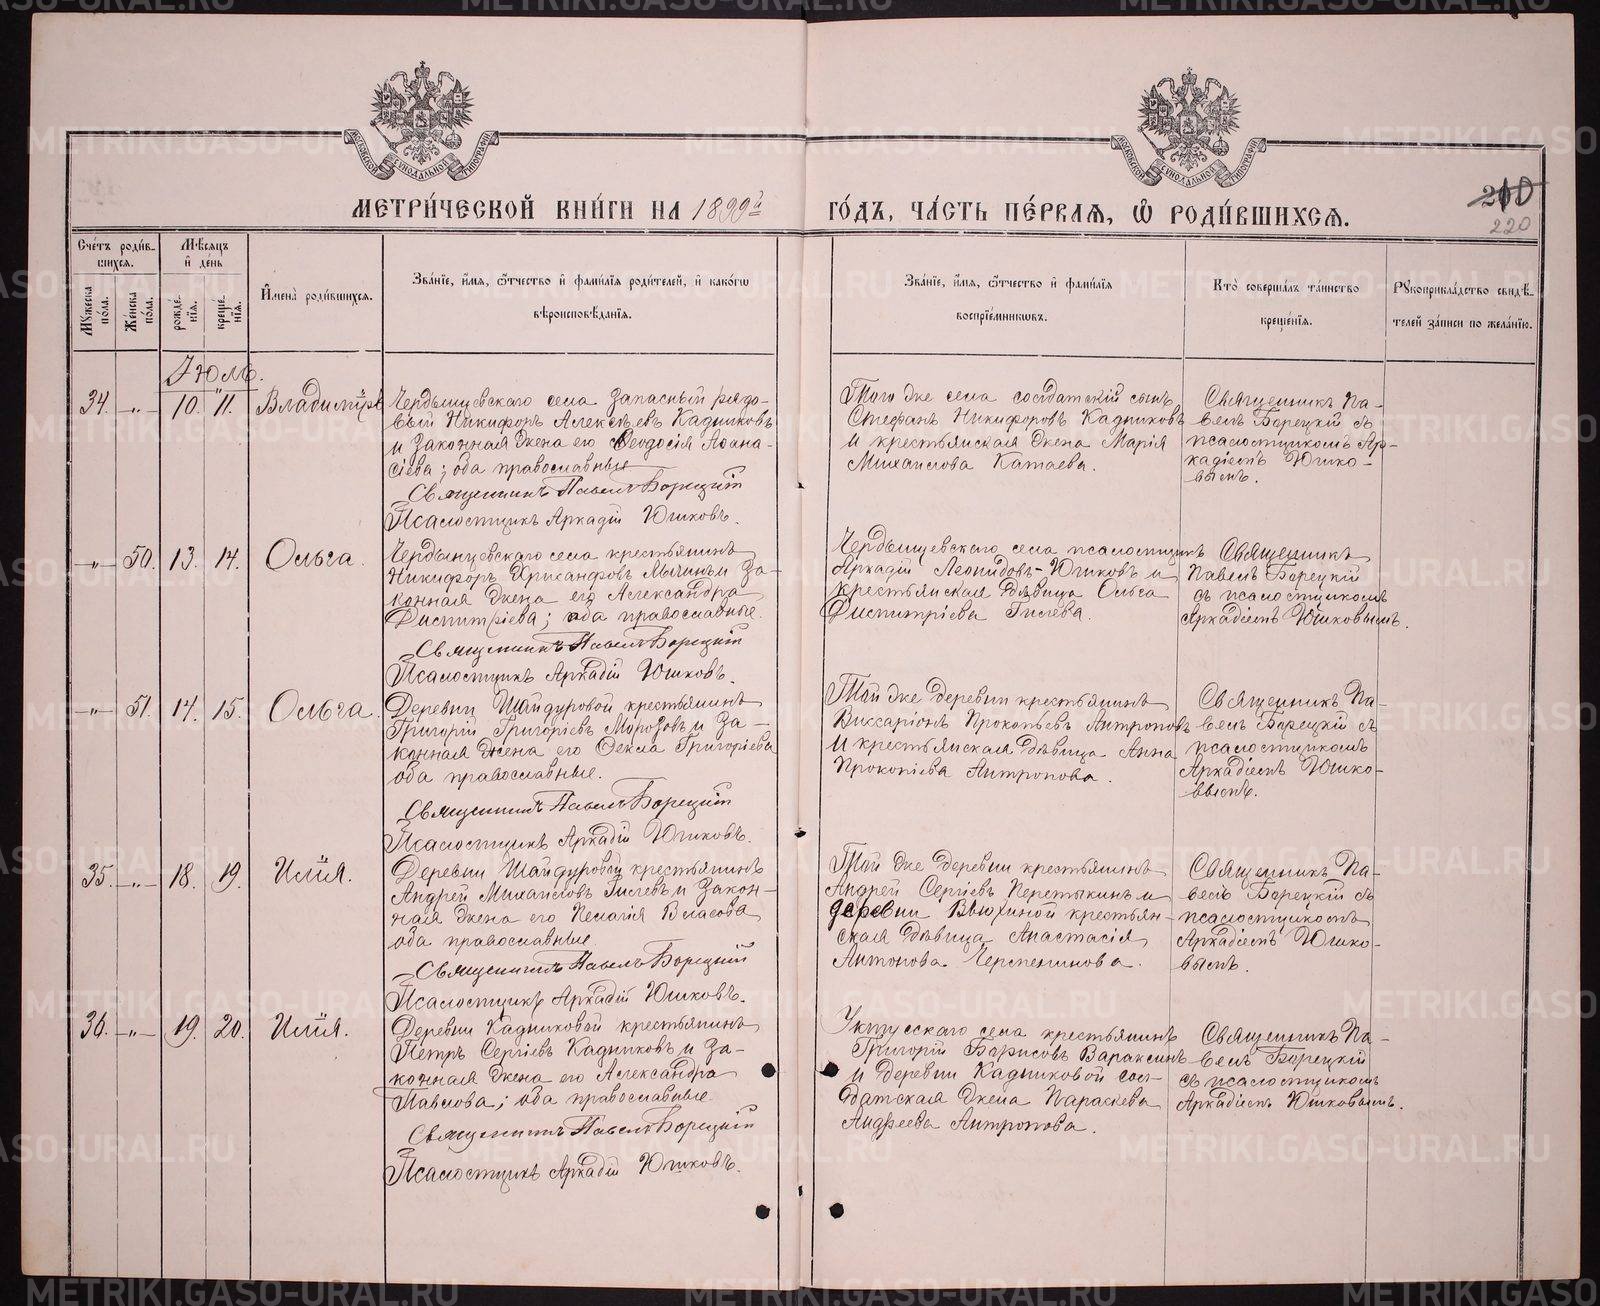 МЕТРИ́ЧЕСКОЙ КНИ́ГИ НА 1899й ГО́ДЪ, ЧА́СТЬ ПЕ́РВАѦ, Ѽ РОДИ́ВШИХСѦ.
210
220
Сче́тъ роди́в-
шихсѧ.
Мѣ́сѧцъ
и҆ де́нь
Мꙋ́жеска
по́ла.
Же́нска
по́ла.
рожде́-
нїѧ.
креще́-
нїѧ.
И҆мена̀ роди́вшихсѧ.
Зва́нїе, и҆́мѧ, ѻ҆́тчество и҆ фами́лїѧ роди́телей, и҆ како́гѡ
вѣроисповѣ́данїѧ.
Зва́нїе, и҆́мѧ, ѻ҆́тчество и҆ фами́лїѧ
воспрїе́мникѡвъ.
Кто̀ соверша́лъ та́инство
креще́нїѧ.
Рꙋкоприкла́дство свидѣ́-
телей за́писи по жела́нїю.
Іюль.
34. -"- 10. 11. Владиміръ
Чердынцевскаго села запасный рядо-
вый Никифоръ Алексѣевъ Кадниковъ
и законная жена его Ѳеодосія Аѳана-
сіева; оба православные
Священникъ Павелъ Борецкій
Псаломщикъ Аркадій Юшковъ.
Того же села солдатскій сынъ
Стефанъ Никифоровъ Кадниковъ
и крестьянская жена Марія
Михаилова Катаева.
Священникъ Па-
велъ Борецкій съ
псаломщикомъ Ар-
кадіемъ Юшко-
вымъ.
-"- 50. 13. 14. Ольга.
Чердынцевскаго села крестьянинъ
Никифоръ Хрисанфовъ и за-
конная жена его Александра
Димитріева; оба православные.
Священникъ Павелъ Борецкій
Псаломщикъ Аркадій Юшковъ.
Чердынцевскаго села псаломщикъ
Аркадій Леонидовъ Юшковъ и
крестьянская дѣвица Ольга
Димитріева Гилева.
Священникъ
Павелъ Борецкій
съ псаломщикомъ
Аркадіемъ Юшковымъ.
-"- 51. 14. 15. Ольга.
Деревни Шайдуровой крестьянинъ
Григорій Григоріевъ Морозовъ и за-
конная жена его Ѳекла Григоріева
оба православные.
Священникъ Павелъ Борецкій
Псаломщикъ Аркадій Юшковъ.
Той же деревни крестьянинъ
Виссаріонъ Прокопьевъ Антроповъ
и крестьянская дѣвица Анна
Прокопіева Антропова.
Священникъ Па-
велъ Борецкій съ
псаломщикомъ
Аркадіемъ Юшко-
вымъ.
35. -"- 18. 19. Илія.
Деревни Шайдуровой крестьянинъ
Андрей Михаиловъ Гилевъ и закон-
ная жена его Пелагія Власова
оба православные
Священникъ Павелъ Борецкій
Псаломщикъ Аркадій Юшковъ.
Той же деревни крестьянинъ
Андрей Сергіевъ Перетыкинъ и
деревни Вьюхиной крестьян-
ская дѣвица Анастасія
Антонова Черепенинова.
Священникъ Па-
велъ Борецкій съ
псаломщикомъ
Аркадіемъ Юшко-
вымъ.
36. -"- 19. 20. Илія.
Деревни Кадниковой крестьянинъ
Петръ Сергіевъ Кадниковъ и за-
конная жена его Александра
Павлова; оба православные
Священникъ Павелъ Борецкій
Псаломщикъ Аркадій Юшковъ.
Уктусскаго села крестьянинъ
Григорій Борисовъ Вараксинъ
и деревни Кадниковой сол-
датская жена Параскева
Андреева Антропова.
Священникъ Па-
велъ Борецкій
съ псаломщикомъ
Аркадіемъ Юшковымъ.
METRIKI.GASO-URAL.RU